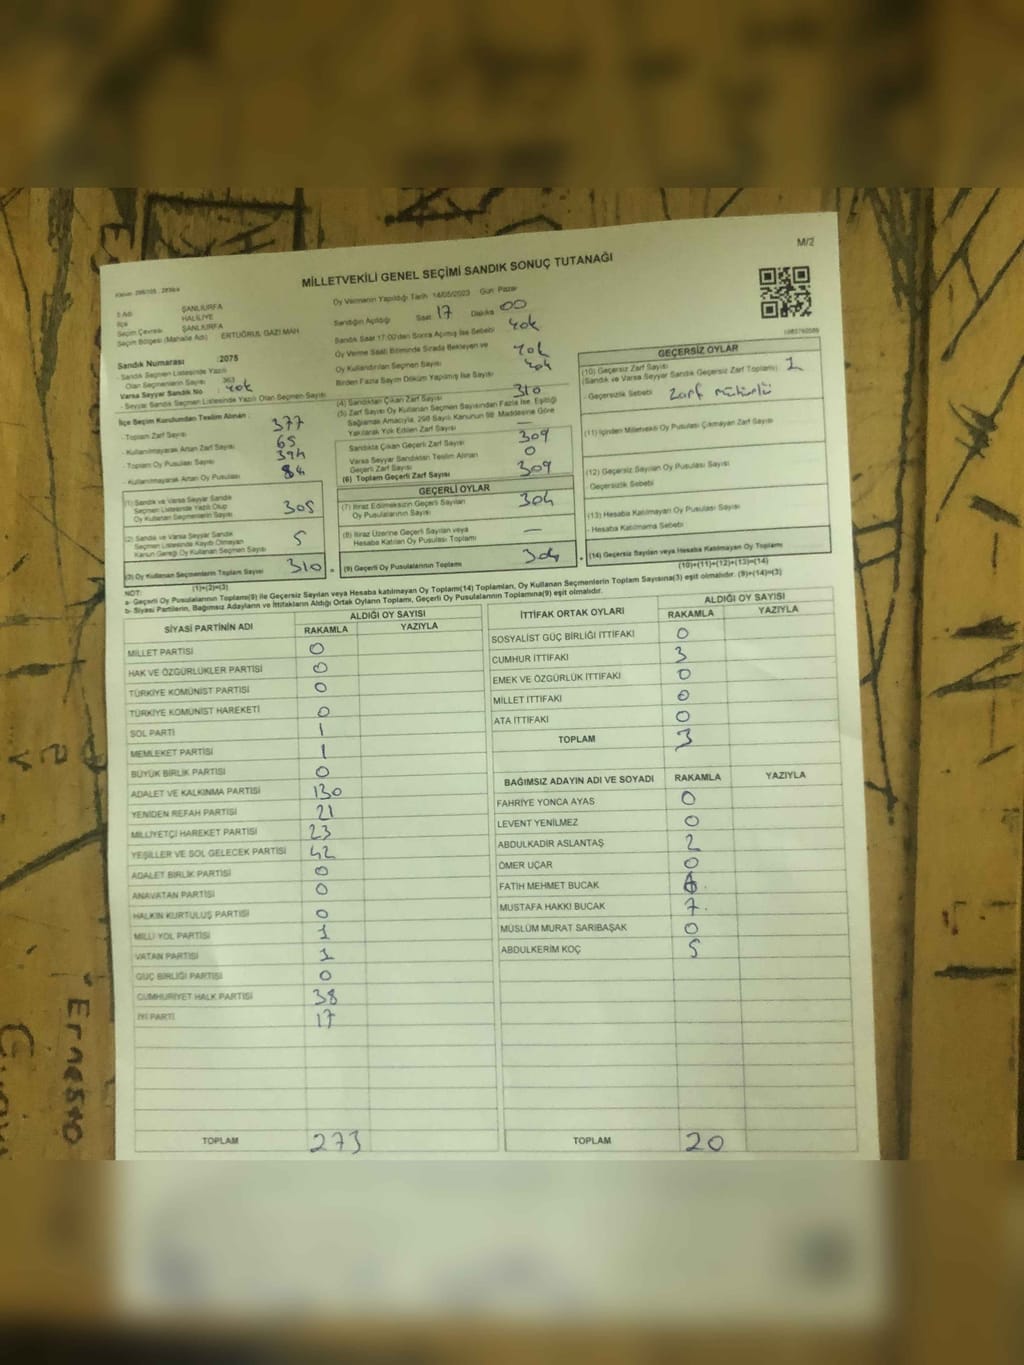 M/2
MİLLETVEKİLİ GENEL SEÇİMİ SANDIK SONUÇ TUTANAĞI
İl Adı : ŞANLIURFA
İlçe : HALİLİYE
Seçim Çevresi : ŞANLIURFA
Seçim Bölgesi (Mahalle Adı) : ERTUĞRUL GAZİ MAH
Sandık Numarası : 2075
- Sandık Seçmen Listesinde Yazılı
Olan Seçmenlerin Sayısı : 363
Varsa Seyyar Sandık No : Yok
- Seyyar Sandık Seçmen Listesinde Yazılı Olan Seçmen Sayısı
Oy Vermenin Yapıldığı Tarih : 14/05/2023 Gün: Pazar
Sandığın Açıldığı Saat 17 Dakika 00
Sandık Saat 17:00'den Sonra Açılmış İse Sebebi Yok
Oy Verme Saati Bitiminde Sırada Bekleyen ve
Oy Kullandırılan Seçmen Sayısı Yok
Birden Fazla Sayım Döküm Yapılmış İse Sayısı Yok
İlçe Seçim Kurulundan Teslim Alınan :
- Toplam Zarf Sayısı 377
- Kullanılmayarak Artan Zarf Sayısı 65
- Toplam Oy Pusulası Sayısı 394
- Kullanılmayarak Artan Oy Pusulası 84
(1) Sandık ve Varsa Seyyar Sandık
Seçmen Listesinde Yazılı Olup
Oy Kullanan Seçmenlerin Sayısı 305
(2) Sandık ve Varsa Seyyar Sandık
Seçmen Listesinde Kaydı Olmayan
Kanun Gereği Oy Kullanan Seçmen Sayısı 5
(3) Oy Kullanan Seçmenlerin Toplam Sayısı 310
(1)+(2)=(3)
(4) Sandıktan Çıkan Zarf Sayısı 310
(5) Zarf Sayısı Oy Kullanan Seçmen Sayısından Fazla İse, Eşitliği
Sağlamak Amacıyla, 298 Sayılı Kanunun 98. Maddesine Göre
Yakılarak Yok Edilen Zarf Sayısı —
Sandıkta Çıkan Geçerli Zarf Sayısı 309
Varsa Seyyar Sandıktan Teslim Alınan
Geçerli Zarf Sayısı 0
(6) Toplam Geçerli Zarf Sayısı 309
GEÇERLİ OYLAR
(7) İtiraz Edilmeksizin Geçerli Sayılan
Oy Pusulalarının Sayısı 304
(8) İtiraz Üzerine Geçerli Sayılan veya
Hesaba Katılan Oy Pusulası Toplamı —
(9) Geçerli Oy Pusulalarının Toplamı 304
GEÇERSİZ OYLAR
(10) Geçersiz Zarf Sayısı
(Sandık ve Varsa Seyyar Sandık Geçersiz Zarf Toplamı) 1
- Geçersizlik Sebebi Zarf mühürlü
(11) İçinden Milletvekili Oy Pusulası Çıkmayan Zarf Sayısı
(12) Geçersiz Sayılan Oy Pusulası Sayısı
- Geçersizlik Sebebi
(13) Hesaba Katılmayan Oy Pusulası Sayısı
- Hesaba Katılmama Sebebi
(14) Geçersiz Sayılan veya Hesaba Katılmayan Oy Toplamı
(10)+(11)+(12)+(13)=(14)
NOT:
a- Geçerli Oy Pusulalarının Toplamı(9) ile Geçersiz Sayılan veya Hesaba katılmayan Oy Toplamı(14) Toplamları, Oy Kullanan Seçmenlerin Toplam Sayısına(3) eşit olmalıdır. (9)+(14)=(3)
b- Siyasi Partilerin, Bağımsız Adayların ve İttifakların Aldığı Oy Sayısı, Geçerli Oy Pusulalarının Toplamına(9) eşit olmalıdır.
SİYASİ PARTİNİN ADI ALDIĞI OY SAYISI
RAKAMLA YAZIYLA
MİLLET PARTİSİ 0
HAK VE ÖZGÜRLÜKLER PARTİSİ 0
TÜRKİYE KOMÜNİST PARTİSİ 0
TÜRKİYE KOMÜNİST HAREKETİ 0
SOL PARTİ 1
MEMLEKET PARTİSİ 1
BÜYÜK BİRLİK PARTİSİ 0
ADALET VE KALKINMA PARTİSİ 130
YENİDEN REFAH PARTİSİ 21
MİLLİYETÇİ HAREKET PARTİSİ 23
YEŞİLLER VE SOL GELECEK PARTİSİ 42
ADALET BİRLİK PARTİSİ 0
ANAVATAN PARTİSİ 0
HALKIN KURTULUŞ PARTİSİ 0
MİLLİ YOL PARTİSİ 1
VATAN PARTİSİ 1
GÜÇ BİRLİĞİ PARTİSİ 0
CUMHURİYET HALK PARTİSİ 38
İYİ PARTİ 17
TOPLAM 273
İTTİFAK ORTAK OYLARI ALDIĞI OY SAYISI
RAKAMLA YAZIYLA
SOSYALİST GÜÇ BİRLİĞİ İTTİFAKI 0
CUMHUR İTTİFAKI 3
EMEK VE ÖZGÜRLÜK İTTİFAKI 0
MİLLET İTTİFAKI 0
ATA İTTİFAKI 0
TOPLAM 3
BAĞIMSIZ ADAYIN ADI VE SOYADI RAKAMLA YAZIYLA
FAHRİYE YONCA AYAS 0
LEVENT YENİLMEZ 0
ABDULKADİR ASLANTAŞ 2
ÖMER UÇAR 0
FATİH MEHMET BUCAK
MUSTAFA HAKKI BUCAK 7.
MÜSLÜM MURAT SARIBAŞAK 0
ABDULKERİM KOÇ 5
TOPLAM 20
Ernesto